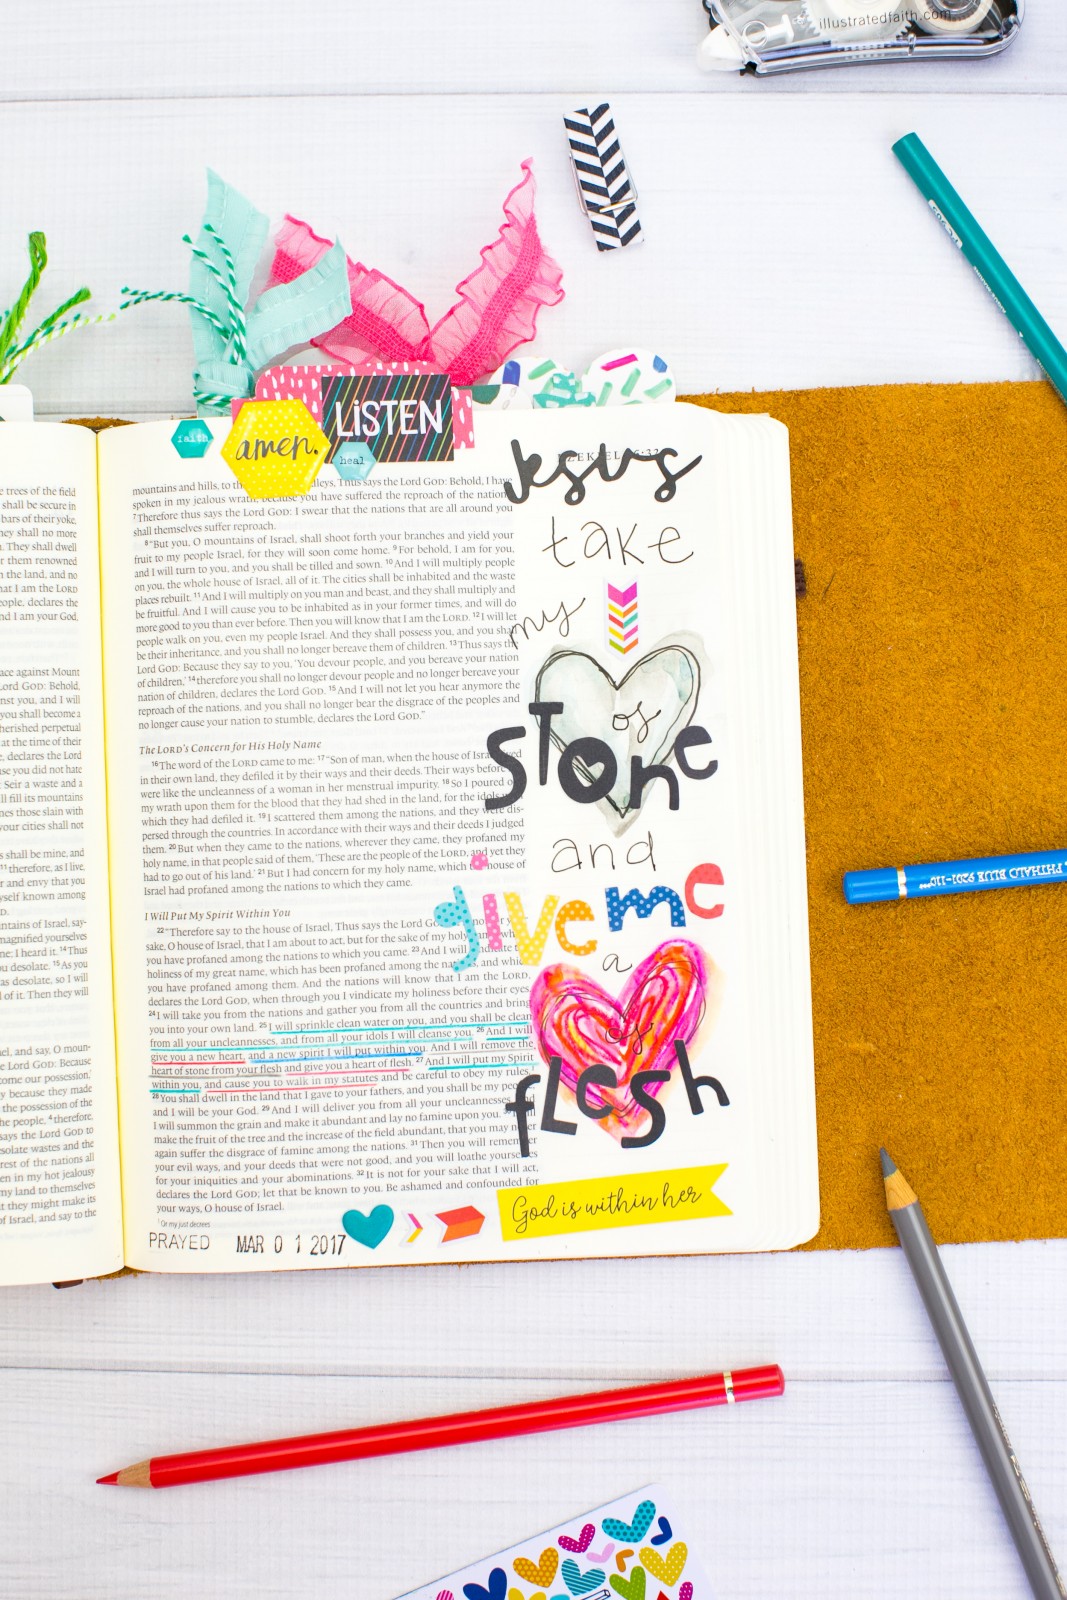 illustratedfaith.com
faith
amen.
LiSTEN
heal
Jesus
take
my
♥ of
STONE
and
give me
a
of
FLESH
God is within her
PRAYED MAR 0 1 2017
PHTHALO BLUE 9201-110
trees of the field
shall be secure in
bars of their yoke,
hey shall no more
n. They shall dwell
r them renowned
n the land, and no
hat I am the LORD
eople, declares the
nd I am your God,
ace against Mount
Lord GOD: Behold,
nst you, and I will
you shall become a
herished perpetual
at the time of their
e, declares the Lord
se you did not hate
Seir a waste and a
ll fill its mountains
nes those slain with
your cities shall not
s shall be mine, and
11 therefore, as I live,
er and envy that you
yself known among
mountains and hills, to the
spoken in my jealous wrath, because you have suffered the reproach of the nations.
7 Therefore thus says the Lord GOD: I swear that the nations that are all around you
shall themselves suffer reproach.
8 "But you, O mountains of Israel, shall shoot forth your branches and yield your
fruit to my people Israel, for they will soon come home. 9 For behold, I am for you,
and I will turn to you, and you shall be tilled and sown. 10 And I will multiply people
on you, the whole house of Israel, all of it. The cities shall be inhabited and the waste
places rebuilt. 11 And I will multiply on you man and beast, and they shall multiply and
be fruitful. And I will cause you to be inhabited as in your former times, and will do
more good to you than ever before. Then you will know that I am the LORD. 12 I will let
people walk on you, even my people Israel. And they shall possess you, and you shall
be their inheritance, and you shall no longer bereave them of children. 13 Thus says the
Lord GOD: Because they say to you, 'You devour people, and you bereave your nation
of children,' 14 therefore you shall no longer devour people and no longer bereave your
nation of children, declares the Lord GOD. 15 And I will not let you hear anymore the
reproach of the nations, and you shall no longer bear the disgrace of the peoples and
no longer cause your nation to stumble, declares the Lord GOD."
The LORD's Concern for His Holy Name
16 The word of the LORD came to me: 17 "Son of man, when the house of Israel lived
in their own land, they defiled it by their ways and their deeds. Their ways before
were like the uncleanness of a woman in her menstrual impurity. 18 So I poured out
my wrath upon them for the blood that they had shed in the land, for the idols
which they had defiled it. 19 I scattered them among the nations, and they were dis-
persed through the countries. In accordance with their ways and their deeds I judged
them. 20 But when they came to the nations, wherever they came, they profaned my
holy name, in that people said of them, 'These are the people of the LORD, and yet they
had to go out of his land.' 21 But I had concern for my holy name, which the house of
Israel had profaned among the nations to which they came.
I Will Put My Spirit Within You
22 "Therefore say to the house of Israel, Thus says the Lord
sake, O house of Israel, that I am about to act, but for the sake of my holy
you have profaned among the nations to which you came. 23 And I will vindicate the
holiness of my great name, which has been profaned among the nations, and which
you have profaned among them. And the nations will know that I am the LORD,
declares the Lord GOD, when through you I vindicate my holiness before their eyes.
24 I will take you from the nations and gather you from all the countries and bring
you into your own land. 25 I will sprinkle clean water on you, and you shall be clean
from all your uncleannesses, and from all your idols I will cleanse you. 26 And I will
give you a new heart, and a new spirit I will put within you. And I will remove the
heart of stone from your flesh and give you a heart of flesh. 27 And I will put my Spirit
within you, and cause you to walk in my statutes and be careful to obey my rules.
28 You shall dwell in the land that I gave to your fathers, and you shall be my people,
and I will be your God. 29 And I will deliver you from all your uncleannesses. And
I will summon the grain and make it abundant and lay no famine upon you. 30 I will
make the fruit of the tree and the increase of the field abundant, that you may never
again suffer the disgrace of famine among the nations. 31 Then you will remember
your evil ways, and your deeds that were not good, and you will loathe yourselves
for your iniquities and your abominations. 32 It is not for your sake that I will act,
declares the Lord GOD; let that be known to you. Be ashamed and confounded for
your ways, O house of Israel.
1 Or my just decrees